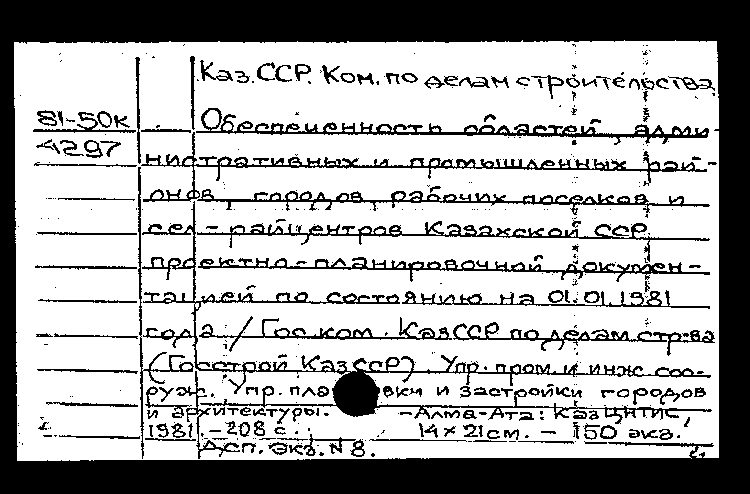 Каз.ССР. Ком. по делам строительства
81-50к Обеспеченность областей, адми-
4297 нистративных и промышленных рай-
онов, городов, рабочих поселков и
сел-райцентров Казахской ССР
проектно-планировочной докумен-
тацией по состоянию на 01.01.1981
года / Гос.ком. КазССР по делам стр-ва
(Госстрой КазССР). Упр. пром. и инж. соо-
руж. Упр. и застройки городов
и архитектуры. - Алма-Ата: КазЦНТИС,
1981. - 208 с.; 14×21см. - 150 экз.
Дсп. Экз. N8.